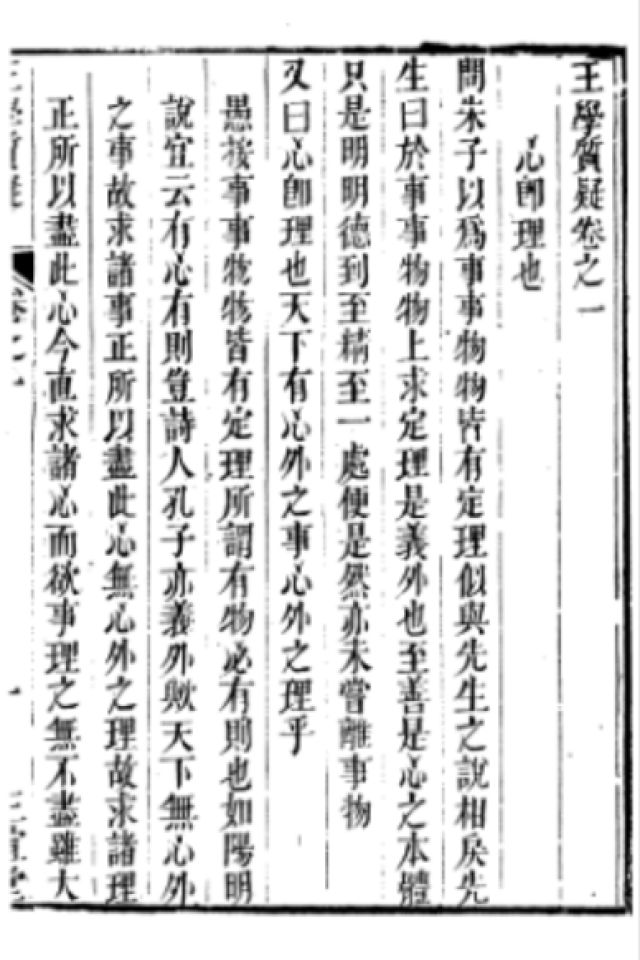 王學質疑卷之一
心卽理也
問朱子以爲事事物物皆有定理似與先生之說相戾先
生曰於事事物物上求定理是義外也至善是心之本體
只是明明德到至精至一處便是然亦未嘗離事物
又曰心卽理也天下有心外之事心外之理乎
愚按事事物物皆有定理所謂有物必有則也如陽明
說宜云有心有則豈詩人孔子亦義外歟天下無心外
之事故求諸事正所以盡此心無心外之理故求諸理
正所以盡此心今直求諸心而欲事理之無不盡雖大